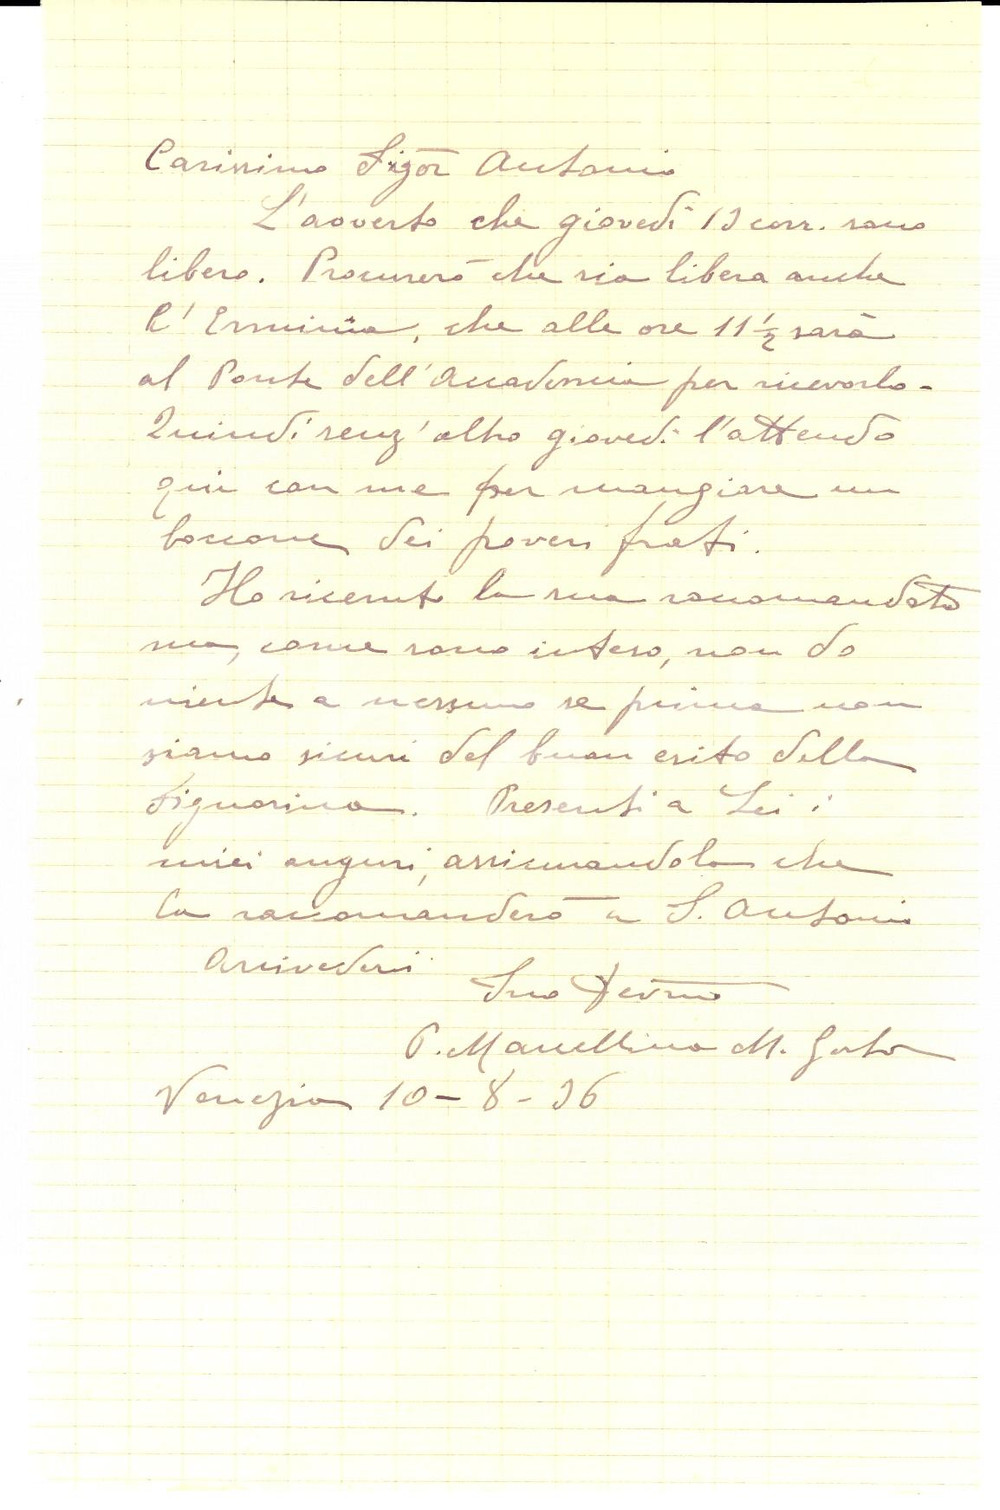 Carissimo Sigōr Antonio
L'avverto che giovedì 13 corr. sono
libero. Procurerò che sia libera anche
l'Erminia, che alle ore 11 ½ sarà
al Ponte dell'Accademia per riceverlo -
Quindi senz'altro giovedì l'attendo
qui con me per mangiare un
boccone dei poveri frati.
Ho ricevuto la sua raccomandata
ma, come sono inteso, non do
niente a nessuno se prima non
siamo sicuri del buon esito della
Signorina. Presenti a Lei i
miei auguri, assicurandola che
la raccomanderò a S. Antonio
Arrivederci
Suo Devmo
P. Marcellino M.
Venezia 10 - 8 - 36